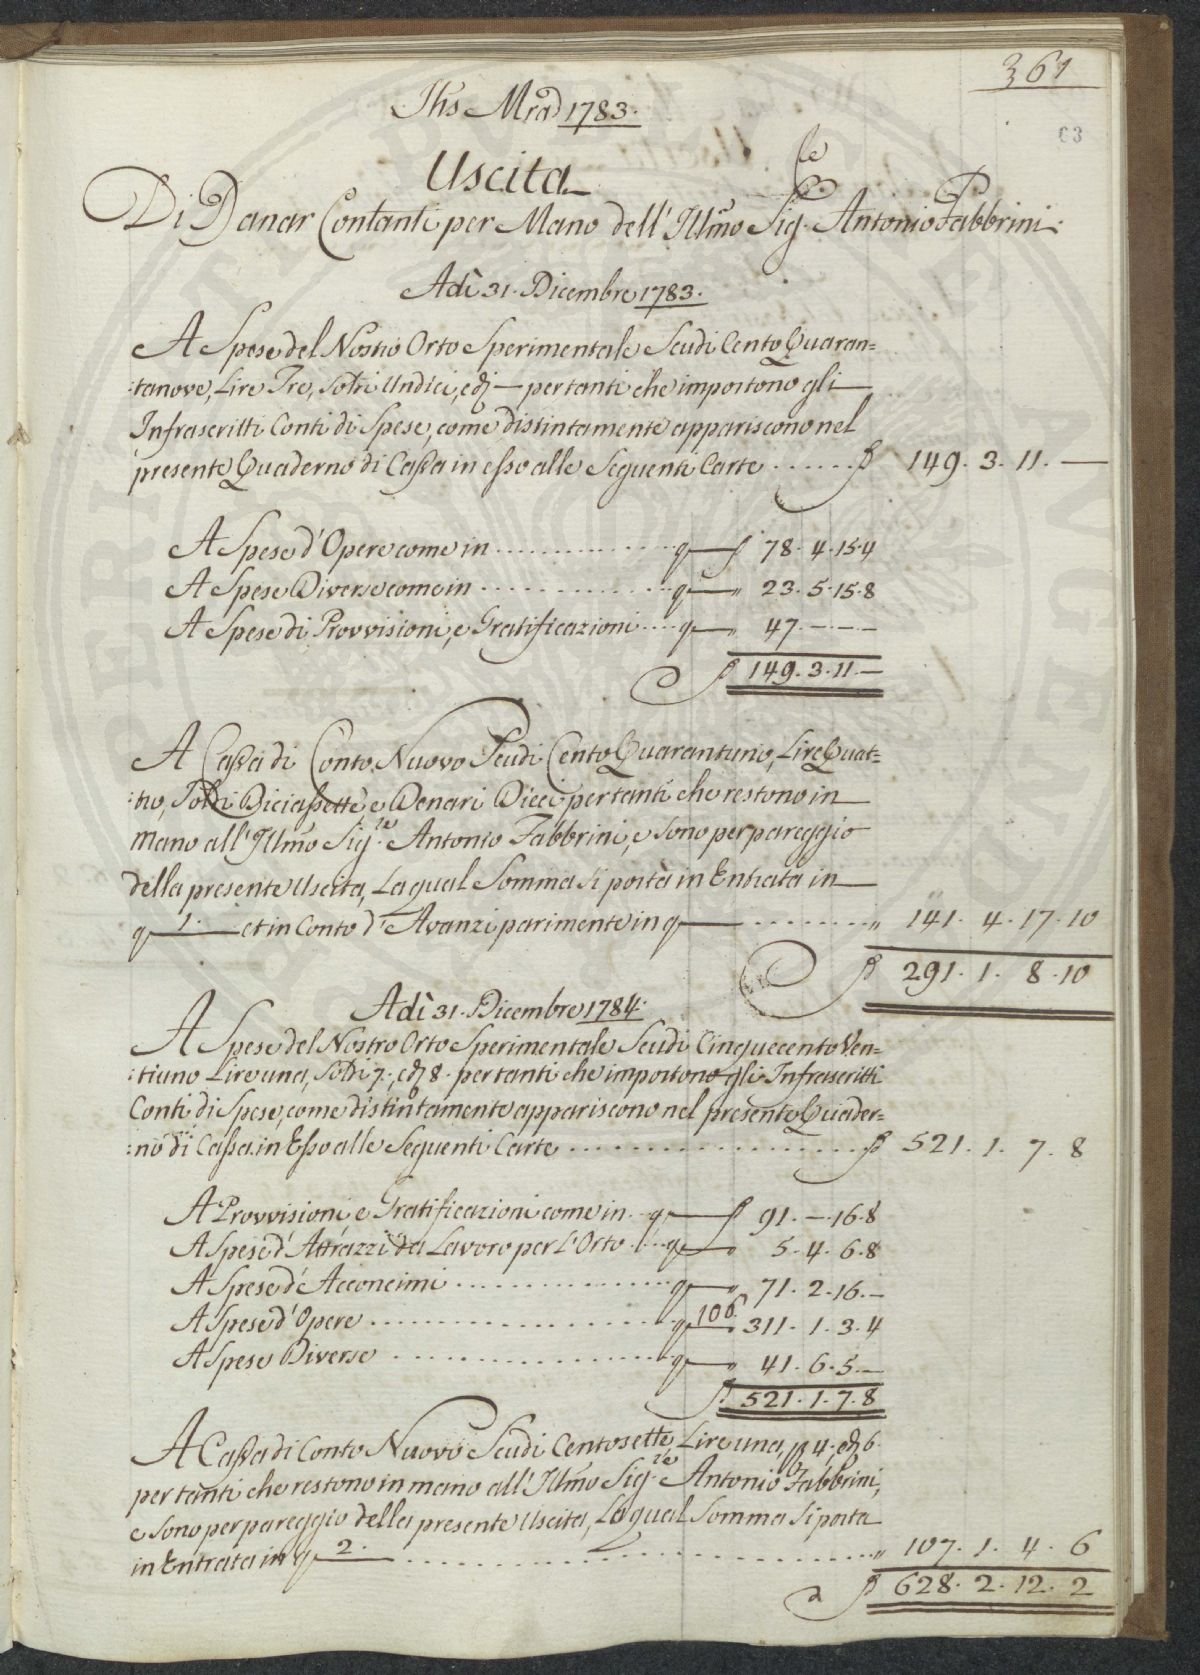 361
63
Jhs Mra 1783.
Uscita
Di Danar Contanti per Mano dell' Illmo Sig.re Antonio Fabbrini.
Adì 31. Dicembre 1783.
A Spese del Nostro Orto Sperimentale Scudi Cento Quaran=
:tanove, Lire Tre, Soldi Undici, e d — per tanti che importono gli
Infrascritti Conti di Spese, come distintamente appariscono nel
presente Quaderno di Cassa in esso alle Seguenti Carte ...... ∫ 149. 3. 11. —
A Spese d' Opere come in .............. q — ∫ 78. 4. 15. 4
A Spese Diverse come in .............. q — " 23. 5. 15. 8
A Spese di Provvisioni, e Gratificazioni .... q — " 47. — — —
∫ 149. 3. 11. —
A Cassa di Conto Nuovo Scudi Cento Quarantuno, Lire Quat=
:tro, Soldi Diciassette e Denari Dieci per tanti che restono in
mano all' Illmo Sig.re Antonio Fabbrini, e sono per pareggio
della presente Uscita, La qual Somma si porta in Entrata in
q 1. et in Conto d' Avanzi parimente in q — ......... " 141. 4. 17. 10
∫ 291. 1. 8. 10
Adì 31. Dicembre 1784.
A Spese del Nostro Orto Sperimentale Scudi Cinquecento Ven=
:tiuno Lire una, Soldi 7., e d 8. per tanti che importono gli Infrascritti
Conti di Spese, come distintamente appariscono nel presente Quader=
:no di Cassa in Esso alle Seguenti Carte .................. ∫ 521. 1. 7. 8
A Provvisioni, e Gratificazioni come in .. q — ∫ 91. — 16. 8
A Spese d' Attrazzi da Lavoro per L' Orto .... q — " 5. 4. 6. 8
A Spese d' Acconcimi .............. q — " 71. 2. 16. —
A Spese d' Opere .................. q 106. 311. 1. 3. 4
A Spese Diverse .................. q — " 41. 6. 5. —
∫ 521. 1. 7. 8
A Cassa di Conto Nuovo Scudi Centosette, Lire una, ß 4. e d 6.
per tanti che restono in mano all' Illmo Sig.re Antonio Fabbrini,
e sono per pareggio della presente Uscita, La qual Somma si porta
in Entrata in q 2. .............................. " 107. 1. 4. 6
∫ 628. 2. 12. 2